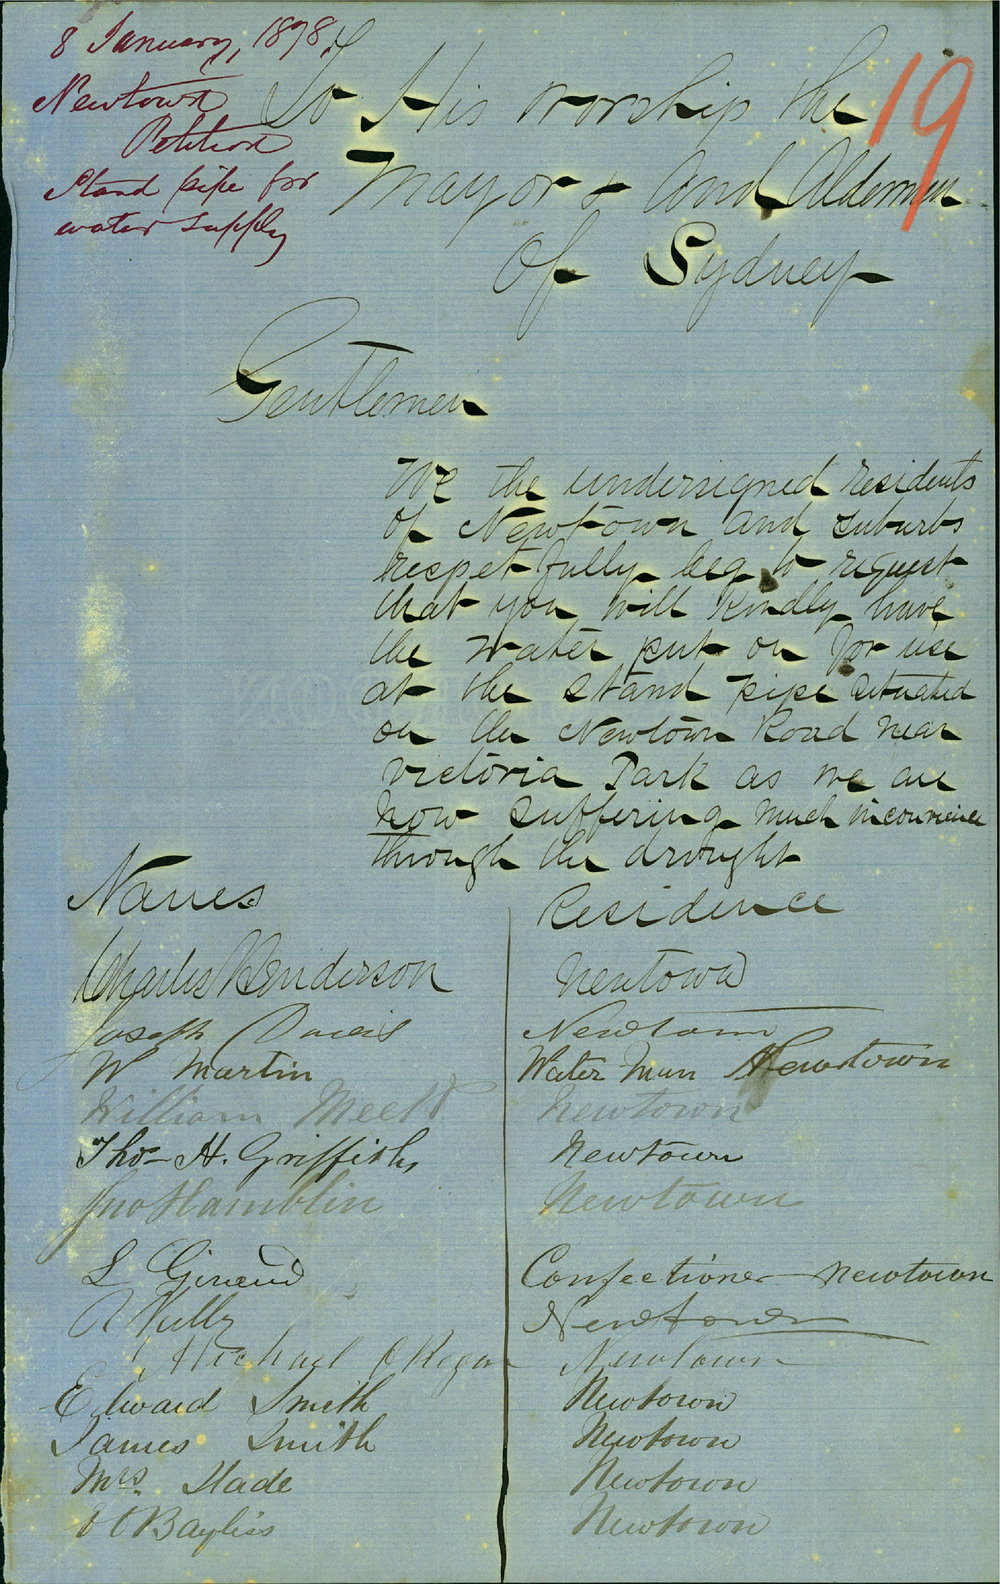 8 January, 1878
Newtown
Petition
Stand pipe for
water supply
19
To His Worship the
Mayor & and Aldermen
Of Sydney
Gentlemen
We the undersigned residents
of Newtown and suburbs
respetfully beg to request
that you will kindly have
the water put on for use
at the stand pipe situated
on the Newtown Road near
Victoria Park as we are
now suffering much inconvience
through the drought
Names Residence
Charles Henderson Newtown
Joseph Davis Newtown
W Martin Water Man Newtown
William Newtown
Thos H. Griffiths Newtown
Jno Hamblin Newtown
L Confectioner Newtown
Newtown
Michael O Regan Newtown
Edward Smith Newtown
James Smith Newtown
Mrs. Slade Newtown
Bayliss Newtown